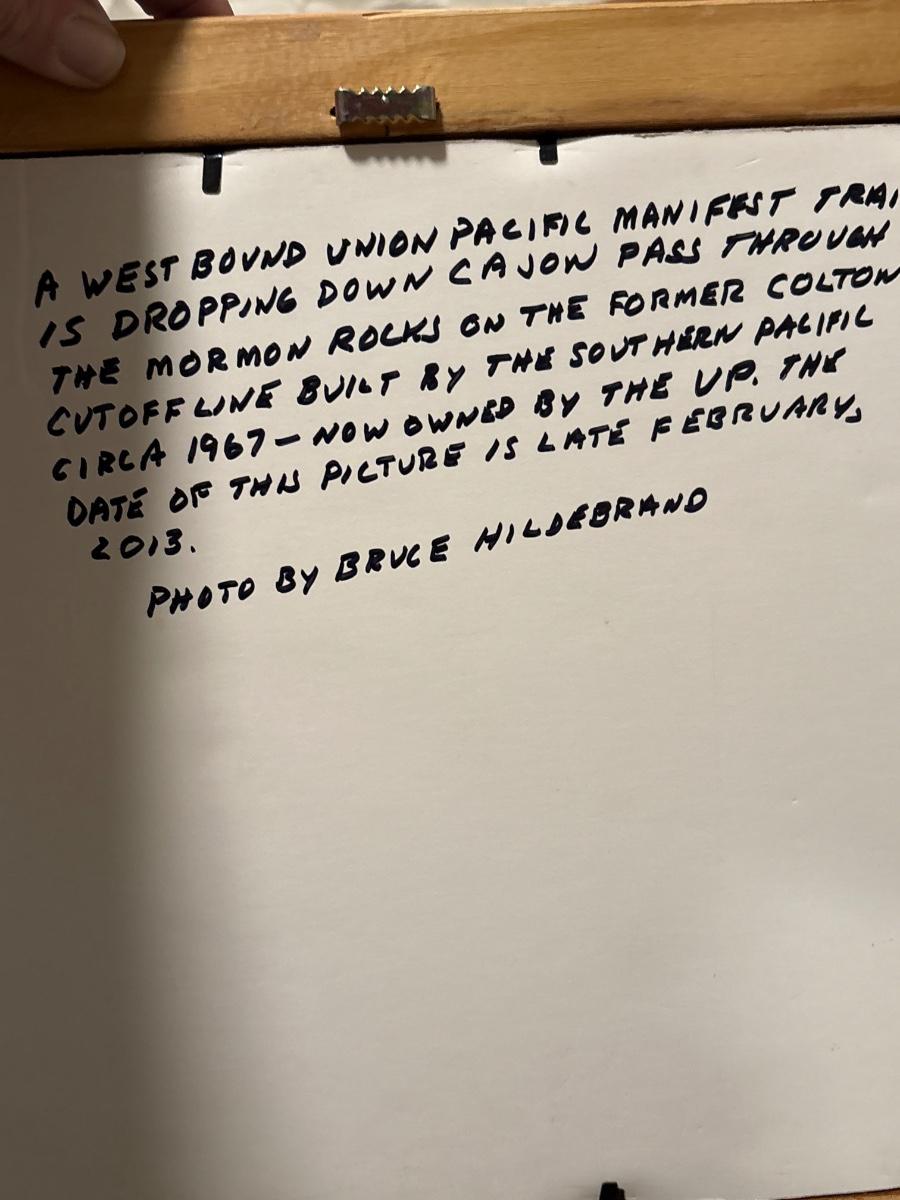 A WEST BOUND UNION PACIFIC MANIFEST TRAI
IS DROPPING DOWN CAJON PASS THROUGH
THE MORMON ROCKS ON THE FORMER COLTON
CUTOFF LINE BUILT BY THE SOUTHERN PACIFIC
CIRCA 1967 - NOW OWNED BY THE UP. THE
DATE OF THIS PICTURE IS LATE FEBRUARY,
2013.
PHOTO BY BRUCE HILDEBRAND